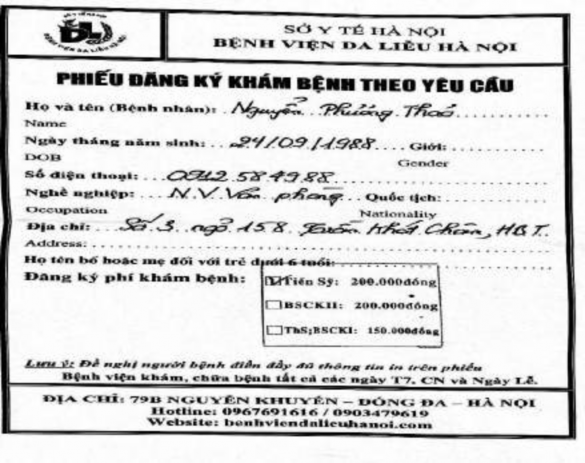 SỞ Y TẾ HÀ NỘI
BỆNH VIỆN DA LIỄU HÀ NỘI
PHIẾU ĐĂNG KÝ KHÁM BỆNH THEO YÊU CẦU
Họ và tên (Bệnh nhân): Nguyễn Phương Thảo
Name
Ngày tháng năm sinh: 24/09/1988 Giới:
DOB Gender
Số điện thoại: 0912 584988
Nghề nghiệp: N.V Văn phòng Quốc tịch:
Occupation Nationality
Địa chỉ: Số 3 ngõ 158 Khát Chân, HBT.
Address:
Họ tên bố hoặc mẹ đối với trẻ dưới 6 tuổi:
Đăng ký phí khám bệnh: Tiến Sỹ: 200.000đồng
BSCKII: 200.000đồng
ThS;BSCKI: 150.000đồng
Lưu ý: Đề nghị người bệnh điền đầy đủ thông tin in trên phiếu
Bệnh viện khám, chữa bệnh tất cả các ngày T7, CN và Ngày Lễ.
ĐỊA CHỈ: 79B NGUYỄN KHUYẾN – ĐỐNG ĐA – HÀ NỘI
Hotline: 0967691616 / 0903479619
Website: benhviendalieuhanoi.com